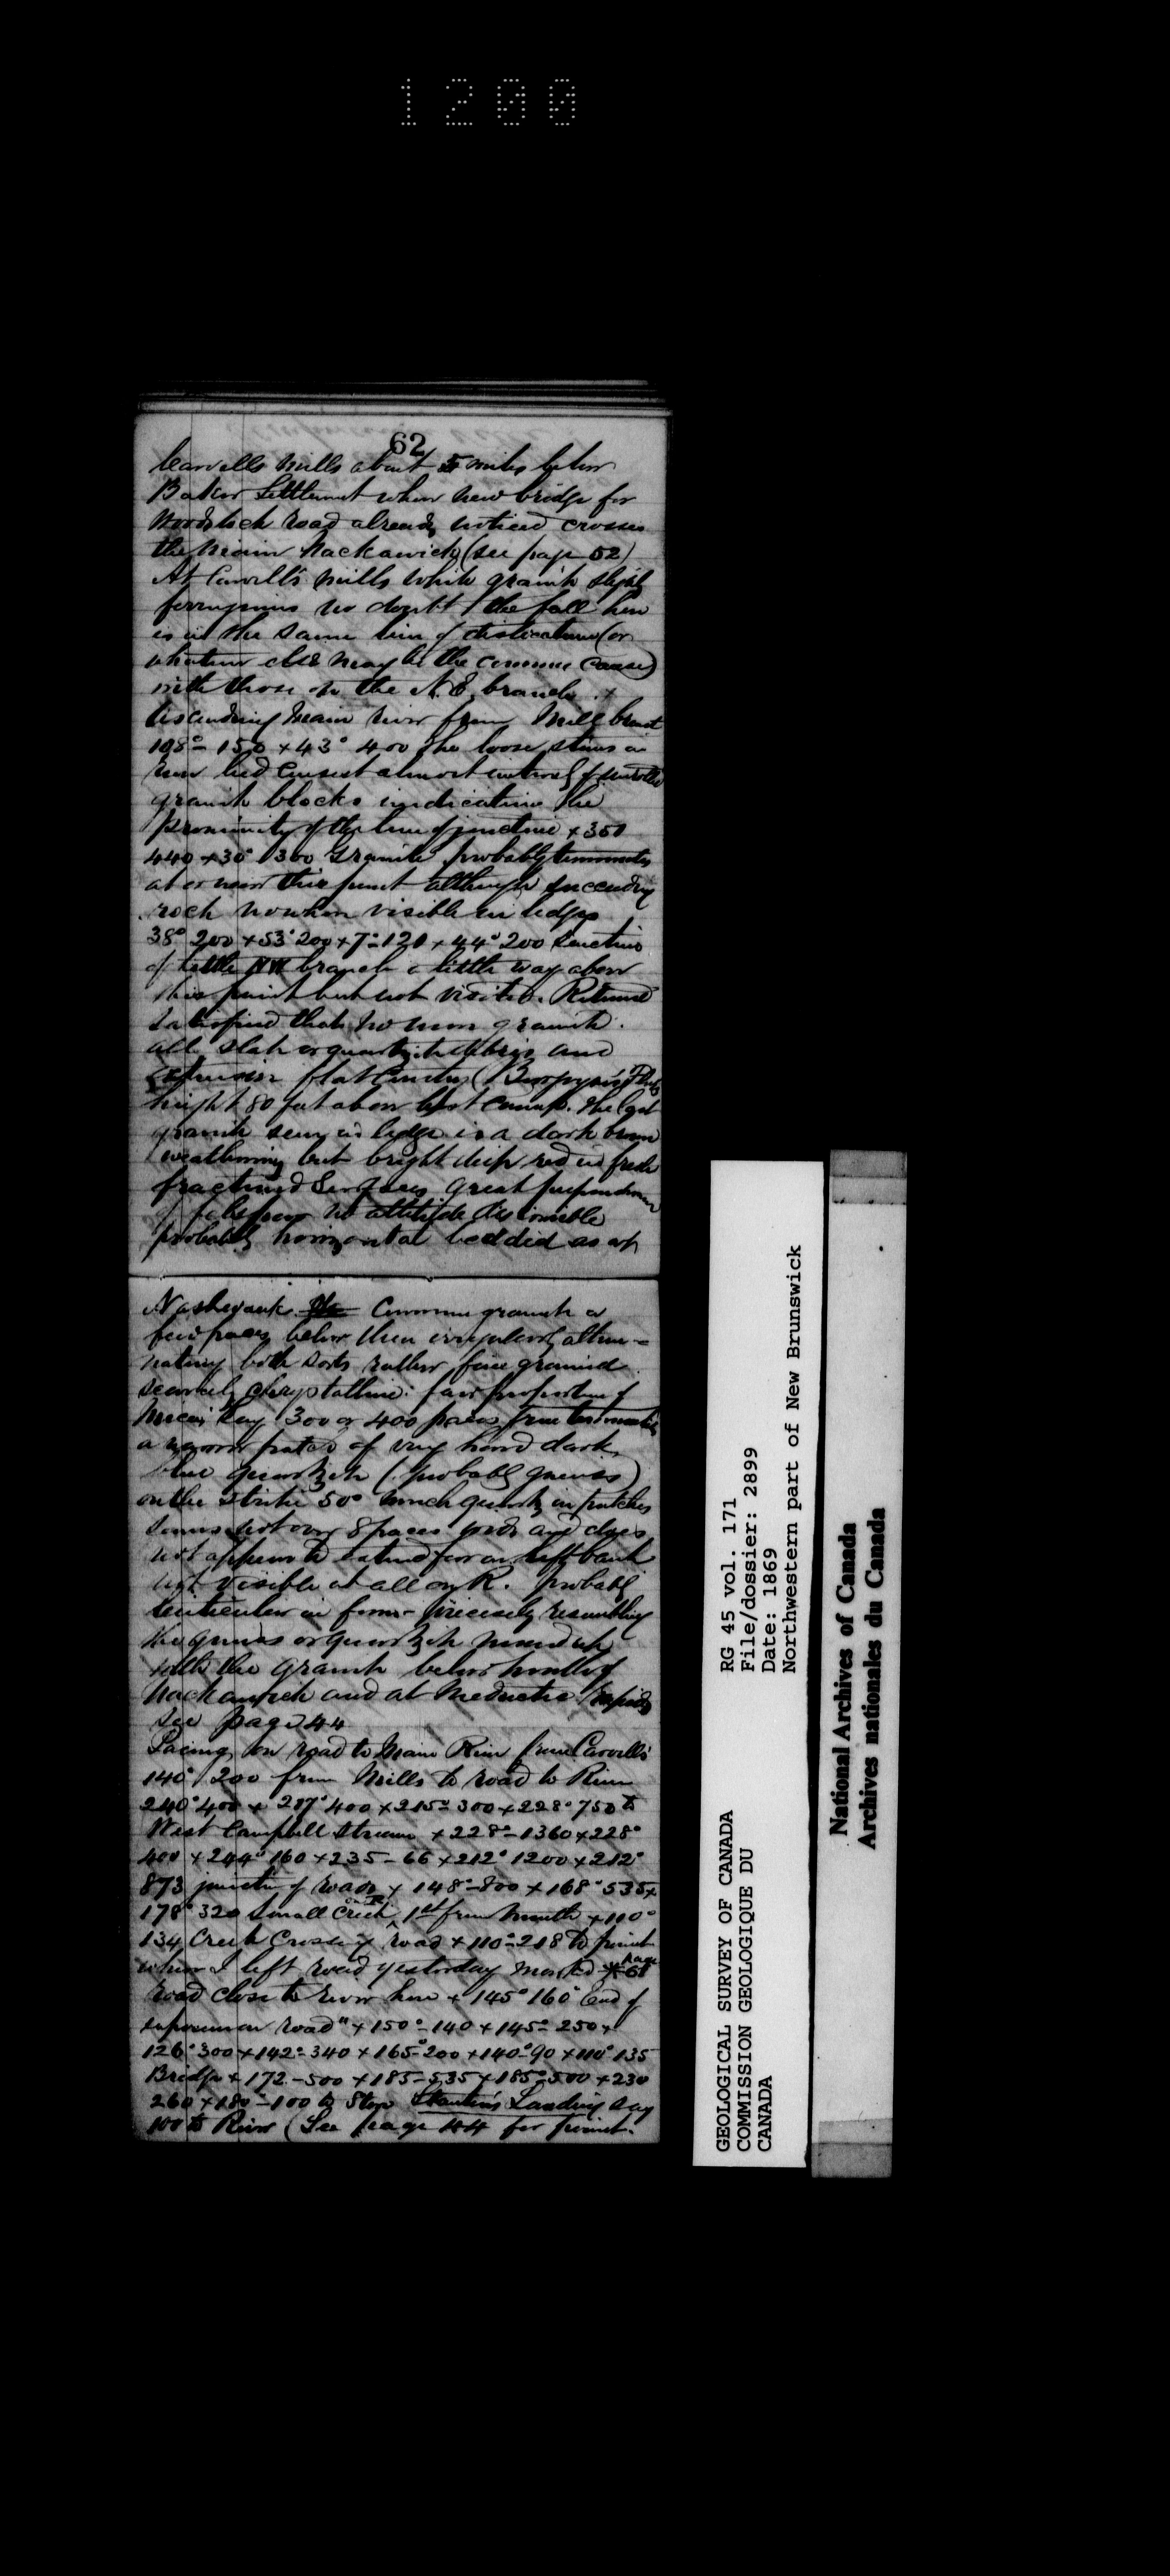 1200
62
Carvells Mills about 5 miles below
Baker Settlement where new bridge for
Woodstock road already noticed crosses
the main Nackawick (see page 52)
At Carvell's mills white granite slightly
ferruginous no doubt the fall here
is in the same line of dislocation (or
whatever else may be the common cause)
with those on the N.E. branch . x
descending main river from Mill
108°- 150 x 43° 400 the loose stones in
river bed consist almost entirely of
granite blocks indicating the
proximity of the line of junction x 350
440 x 30° 1300 Granite probably terminates
at or near this point although succeeding
rock nowhere visible in ledges
38° 200 x 53° 200 x 7° 120 x 44° 200 Junction
of little NW branch a little way above
this point but not visited. Returned
satisfied that no more granite.
all slate or quartzite debris and
extensive flat country
height 80 feet above last camp. The last
granite seen in ledge is a dark brown
weathering but bright deep red in fresh
fractured surfaces great preponderance
of felspar no attitude discernible
probably horizontal bedded as at
Nashwaak. Common granite a
few paces below then irregularly alter-
nating both sorts rather fine grained
scarcely chrystalline. fair proportion of
mica. Say 300 or 400 paces from termination
a narrow patch of very hard dark
blue quartzite (probably gneiss)
on the strike 50° much quartz in patches
seams not over 8 paces wide and does
not appear to extend far on left bank
not visible at all on R. probably
lenticular in form - precisely resembling
the gneiss or quartzite mixed up
with the granite below mouth of
Nackawick and at Meductic Rapids
see page 44
Pacing on road to Main River from Carvells
140° 200 from Mills to road to River
240° 400 x 217° 400 x 215° 300 x 228° 750 to
West Campbell Stream x 228°- 1360 x 228°
400 x 244° 160 x 235 - 66 x 212° 1200 x 212°
873 junction of roads x 148°- 800 x 168° 535 x
178° 320 Small Creek 1st from mouth x 110°
134 Creek Crossing road x 110°- 218 to point
where I left road yesterday marked * page 61
road close to river here x 145° 160 End of
road" x 150°- 140 x 145° 250 x
126° 300 x 142°- 340 x 165° 200 x 140° 90 x 110° 135
Bridge x 172 - 500 x 185 - 535 x 185° 500 x 230
260 x 180°- 100 to Stop Landing say
100 to River (See page 44 for point.
GEOLOGICAL SURVEY OF CANADA
COMMISSION GEOLOGIQUE DU
CANADA
RG 45 vol. 171
File/dossier: 2899
Date: 1869
Northwestern part of New Brunswick
National Archives of Canada
Archives nationales du Canada